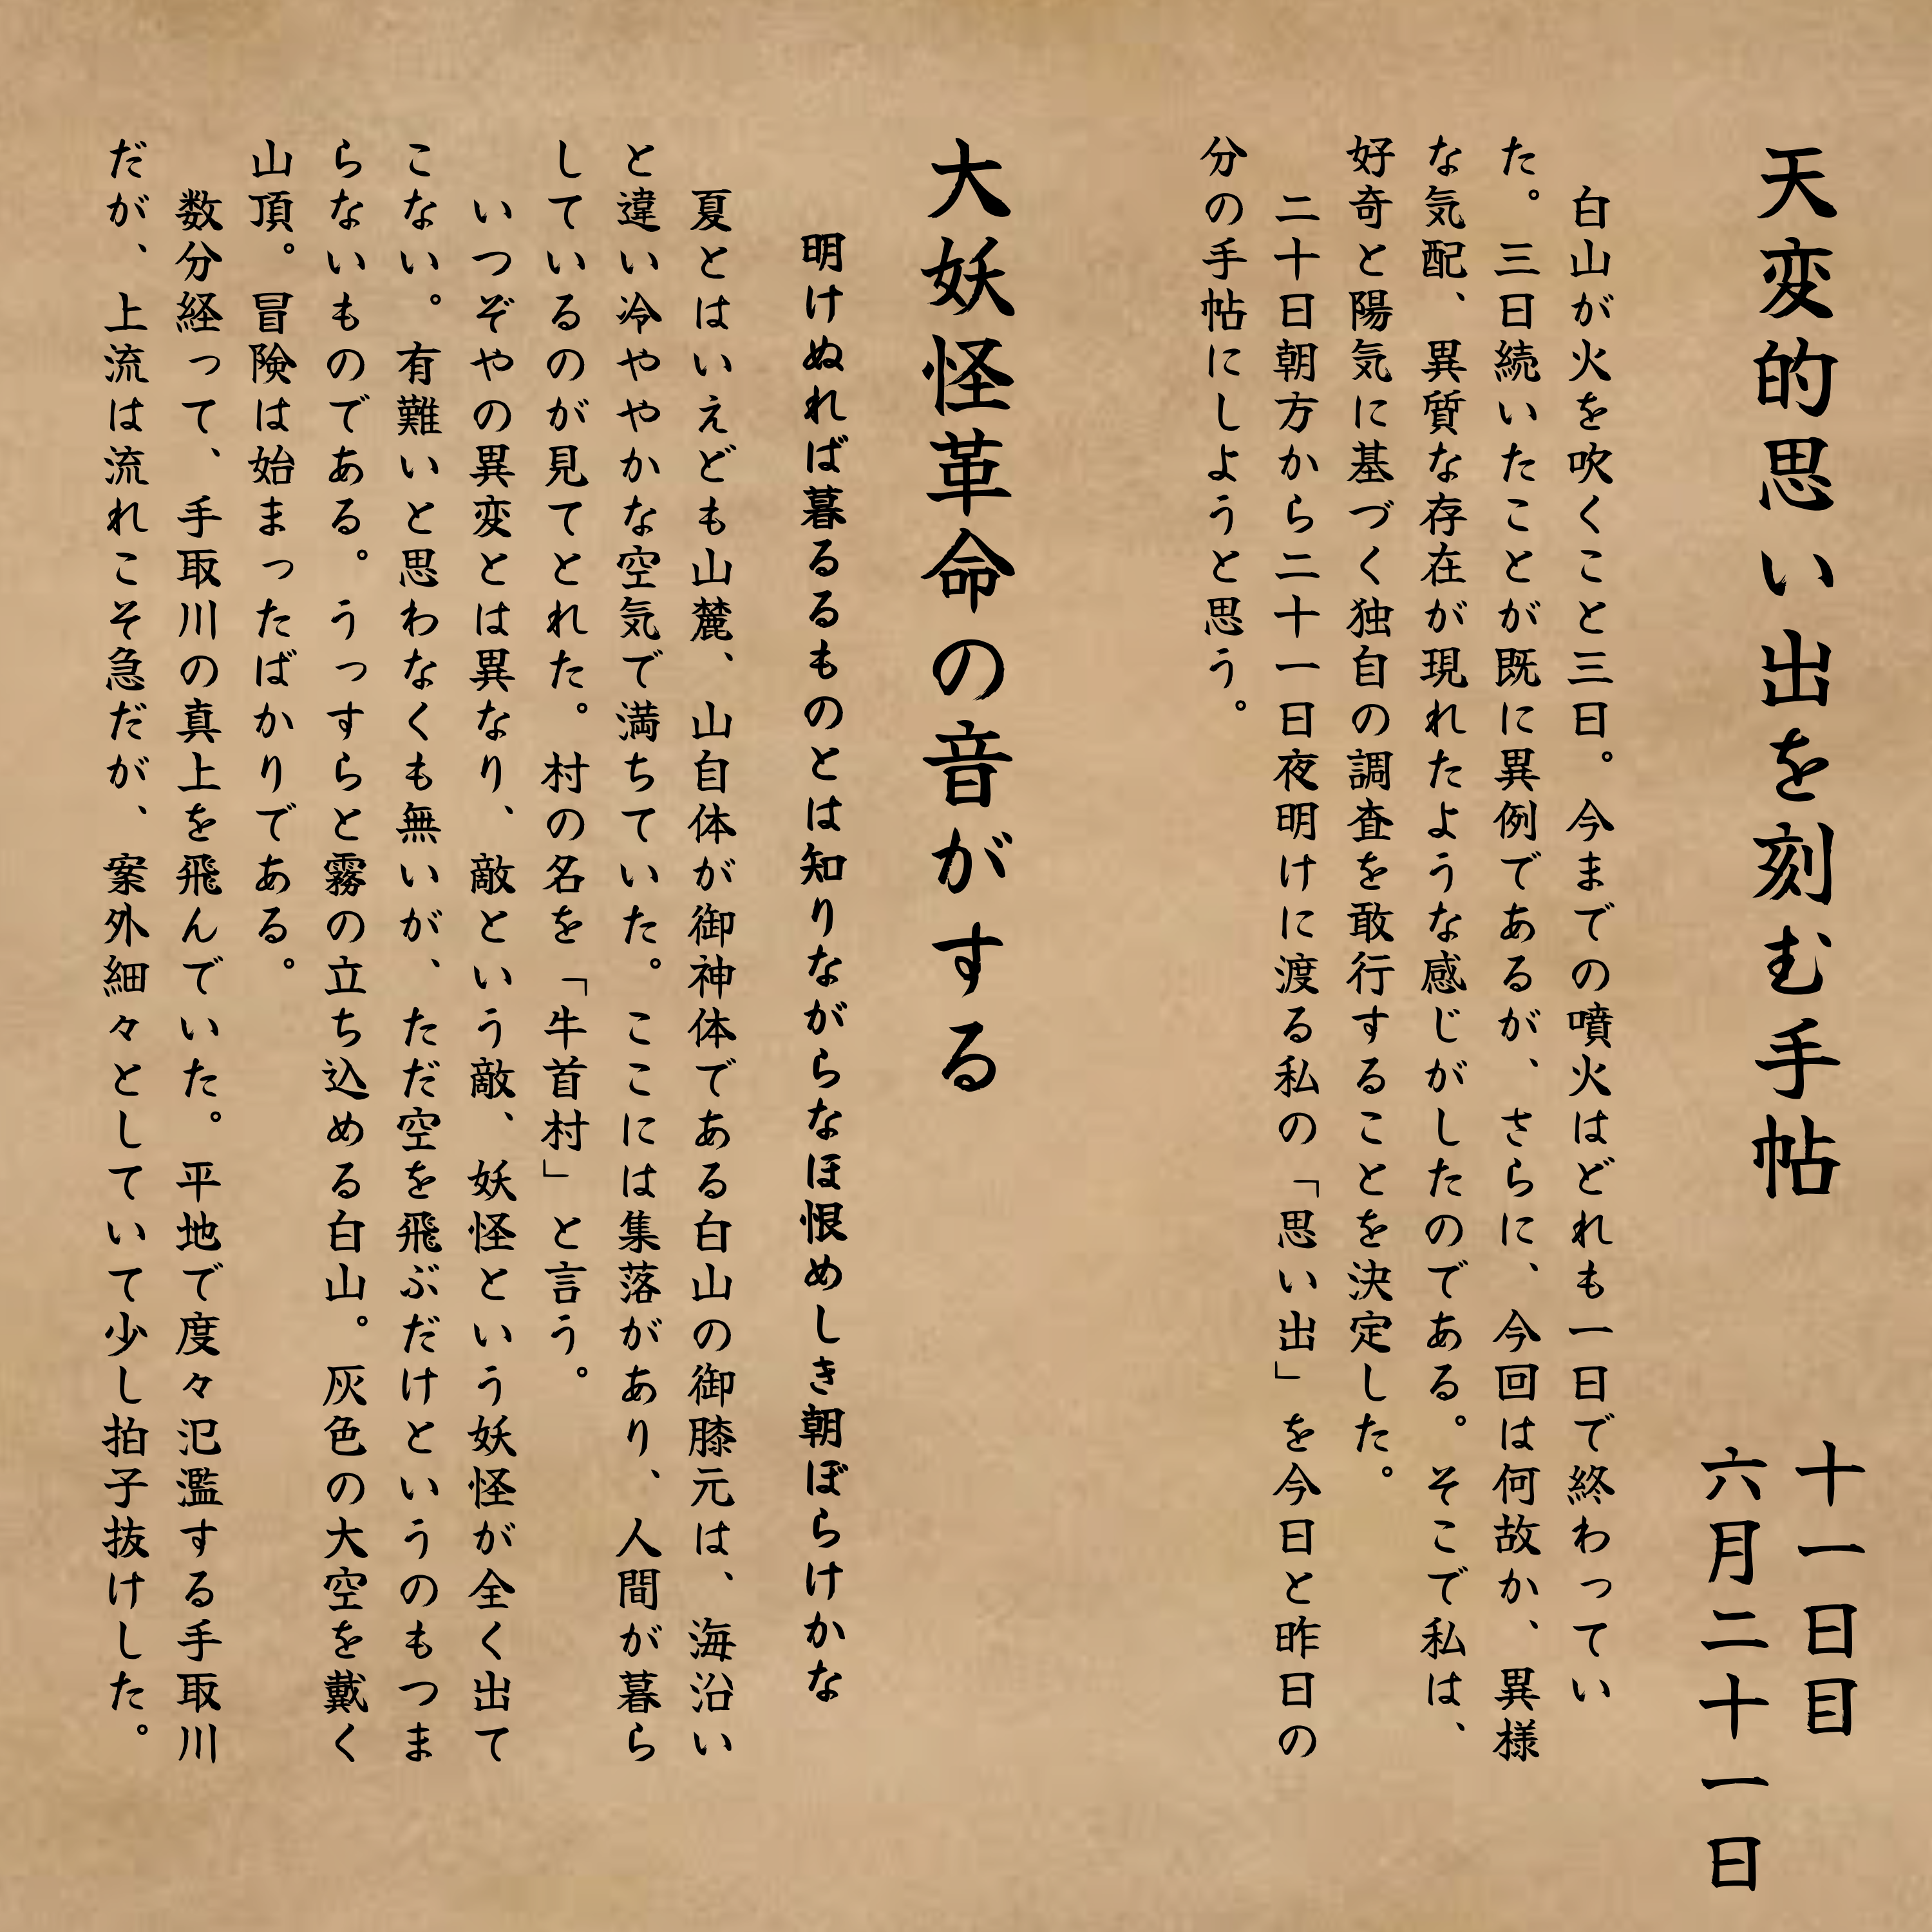 天変的思い出を刻む手帖
十一日目
六月二十一日
白山が火を吹くこと三日。今までの噴火はどれも一日で終わってい
た。三日続いたことが既に異例であるが、さらに、今回は何故か、異様
な気配、異質な存在が現れたような感じがしたのである。そこで私は、
好奇と陽気に基づく独自の調査を敢行することを決定した。
二十日朝方から二十一日夜明けに渡る私の「思い出」を今日と昨日の
分の手帖にしようと思う。
大妖怪革命の音がする
明けぬれば暮るるものとは知りながらなほ恨めしき朝ぼらけかな
夏とはいえども山麓、山自体が御神体である白山の御膝元は、海沿い
と違い冷ややかな空気で満ちていた。ここには集落があり、人間が暮ら
しているのが見てとれた。村の名を「牛首村」と言う。
いつぞやの異変とは異なり、敵という敵、妖怪という妖怪が全く出て
こない。有難いと思わなくも無いが、ただ空を飛ぶだけというのもつま
らないものである。うっすらと霧の立ち込める白山。灰色の大空を戴く
山頂。冒険は始まったばかりである。
数分経って、手取川の真上を飛んでいた。平地で度々氾濫する手取川
だが、上流は流れこそ急だが、案外細々としていて少し拍子抜けした。